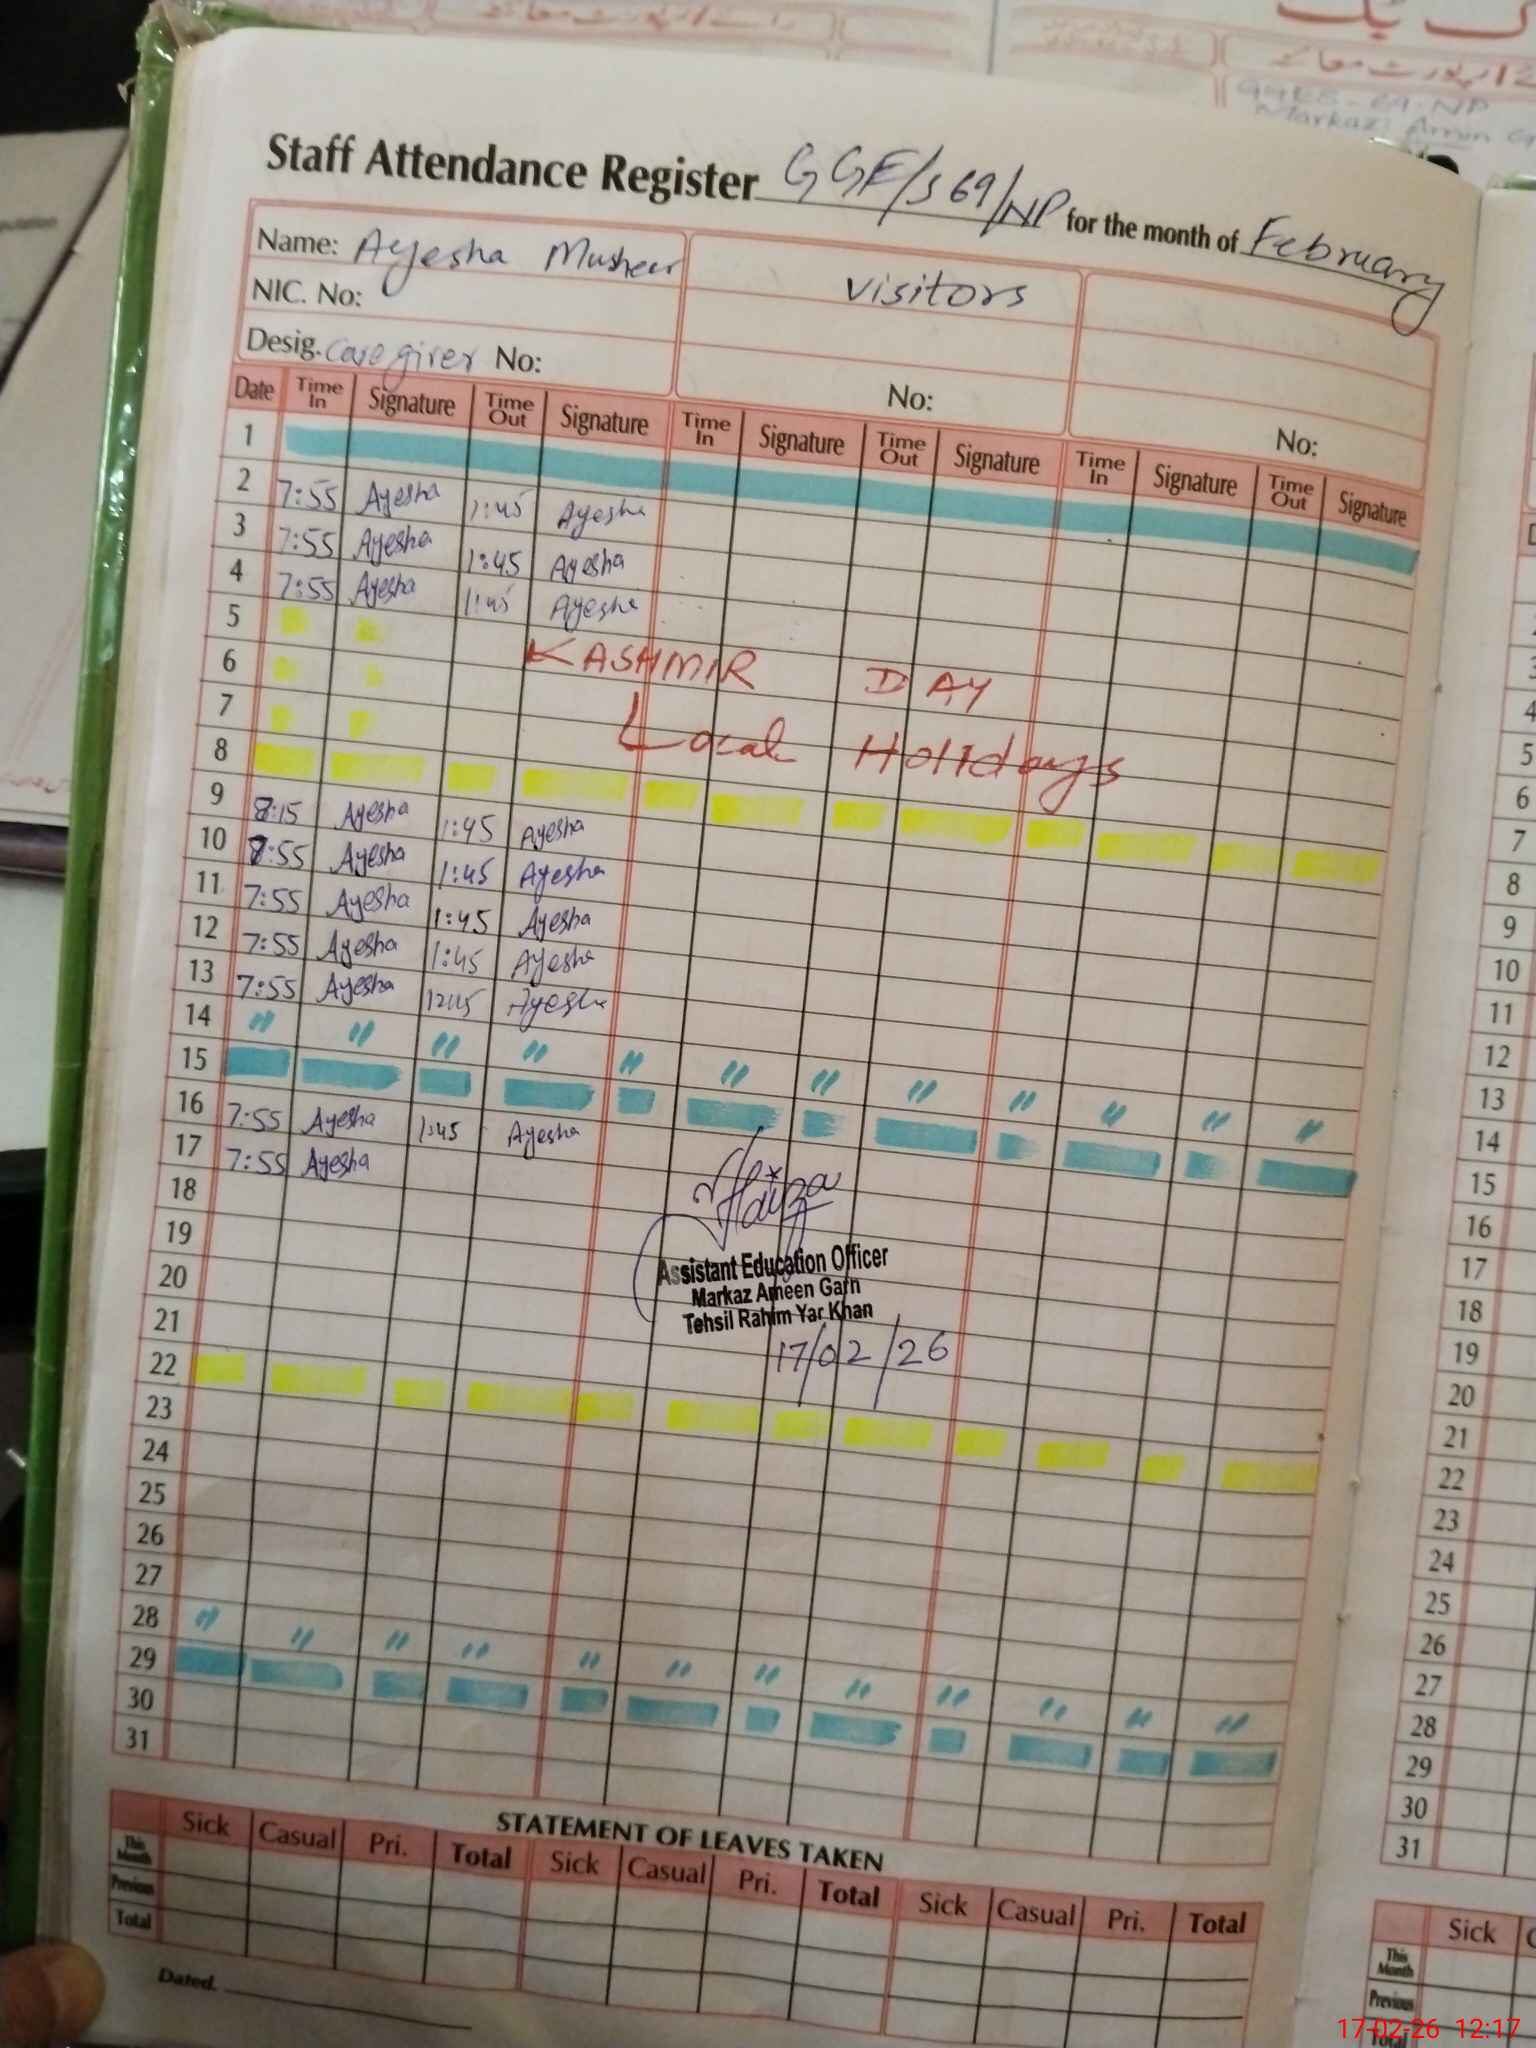 GGES-69-NP
Staff Attendance Register GGE/S 69/NP for the month of February
Name: Ayesha Musheer visitors
NIC. No:
Desig. Caregiver No: No: No:
Date Time In Signature Time Out Signature Time In Signature Time Out Signature Time In Signature Time Out Signature
1
2 7:55 Ayesha 1:45 Ayesha
3 7:55 Ayesha 1:45 Ayesha
4 7:55 Ayesha 1:45 Ayesha
5
6 KASHMIR DAY
7 Local Holidays
8
9 8:15 Ayesha 1:45 Ayesha
10 8:55 Ayesha 1:45 Ayesha
11 7:55 Ayesha 1:45 Ayesha
12 7:55 Ayesha 1:45 Ayesha
13 7:55 Ayesha 12:15 Ayesha
14 " " " " " " " " " " " "
15
16 7:55 Ayesha 1:45 Ayesha
17 7:55 Ayesha
18
19
20
21
22
23
24
25
26
27
28 " " " " " " " " " " " "
29
30
31
Assistant Education Officer
Markaz Ameen Garh
Tehsil Rahim Yar Khan
17/02/26
STATEMENT OF LEAVES TAKEN
Sick Casual Pri. Total Sick Casual Pri. Total Sick Casual Pri. Total
This Month
Previous
Total
Dated.
3
4
5
6
7
8
9
10
11
12
13
14
15
16
17
18
19
20
21
22
23
24
25
26
27
28
29
30
31
Sick
This Month
Previous
Total
17-02-26 12:17